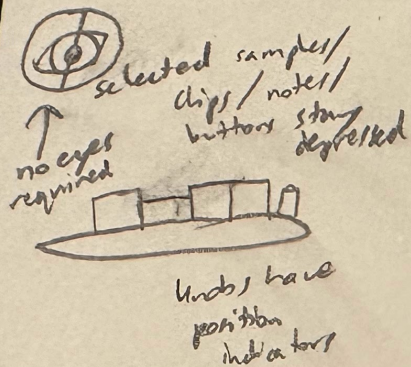 selected samples/
clips/notes/
buttons stay
depressed
no eyes
required
knobs have
position
indicators